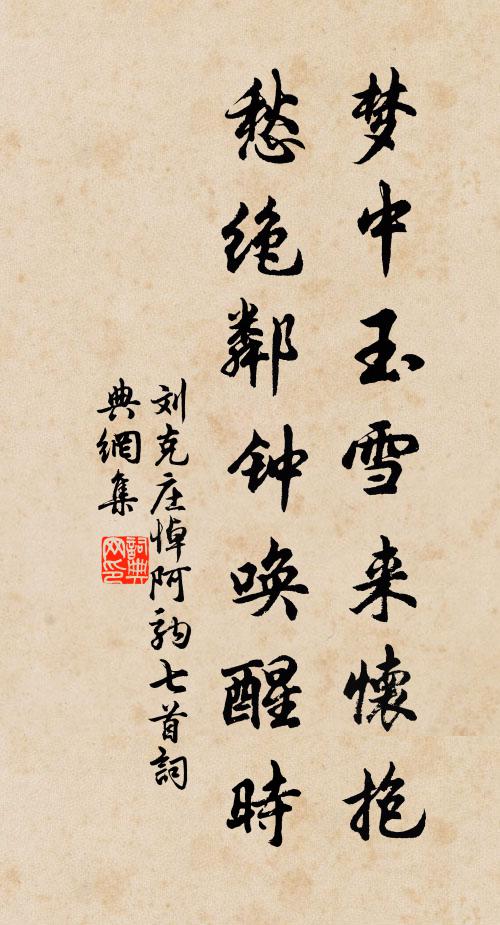 梦中玉雪来懐抱
愁绝鄰钟唤醒時
刘克庄悼阿驹七首詞
典網集
詞典
网印